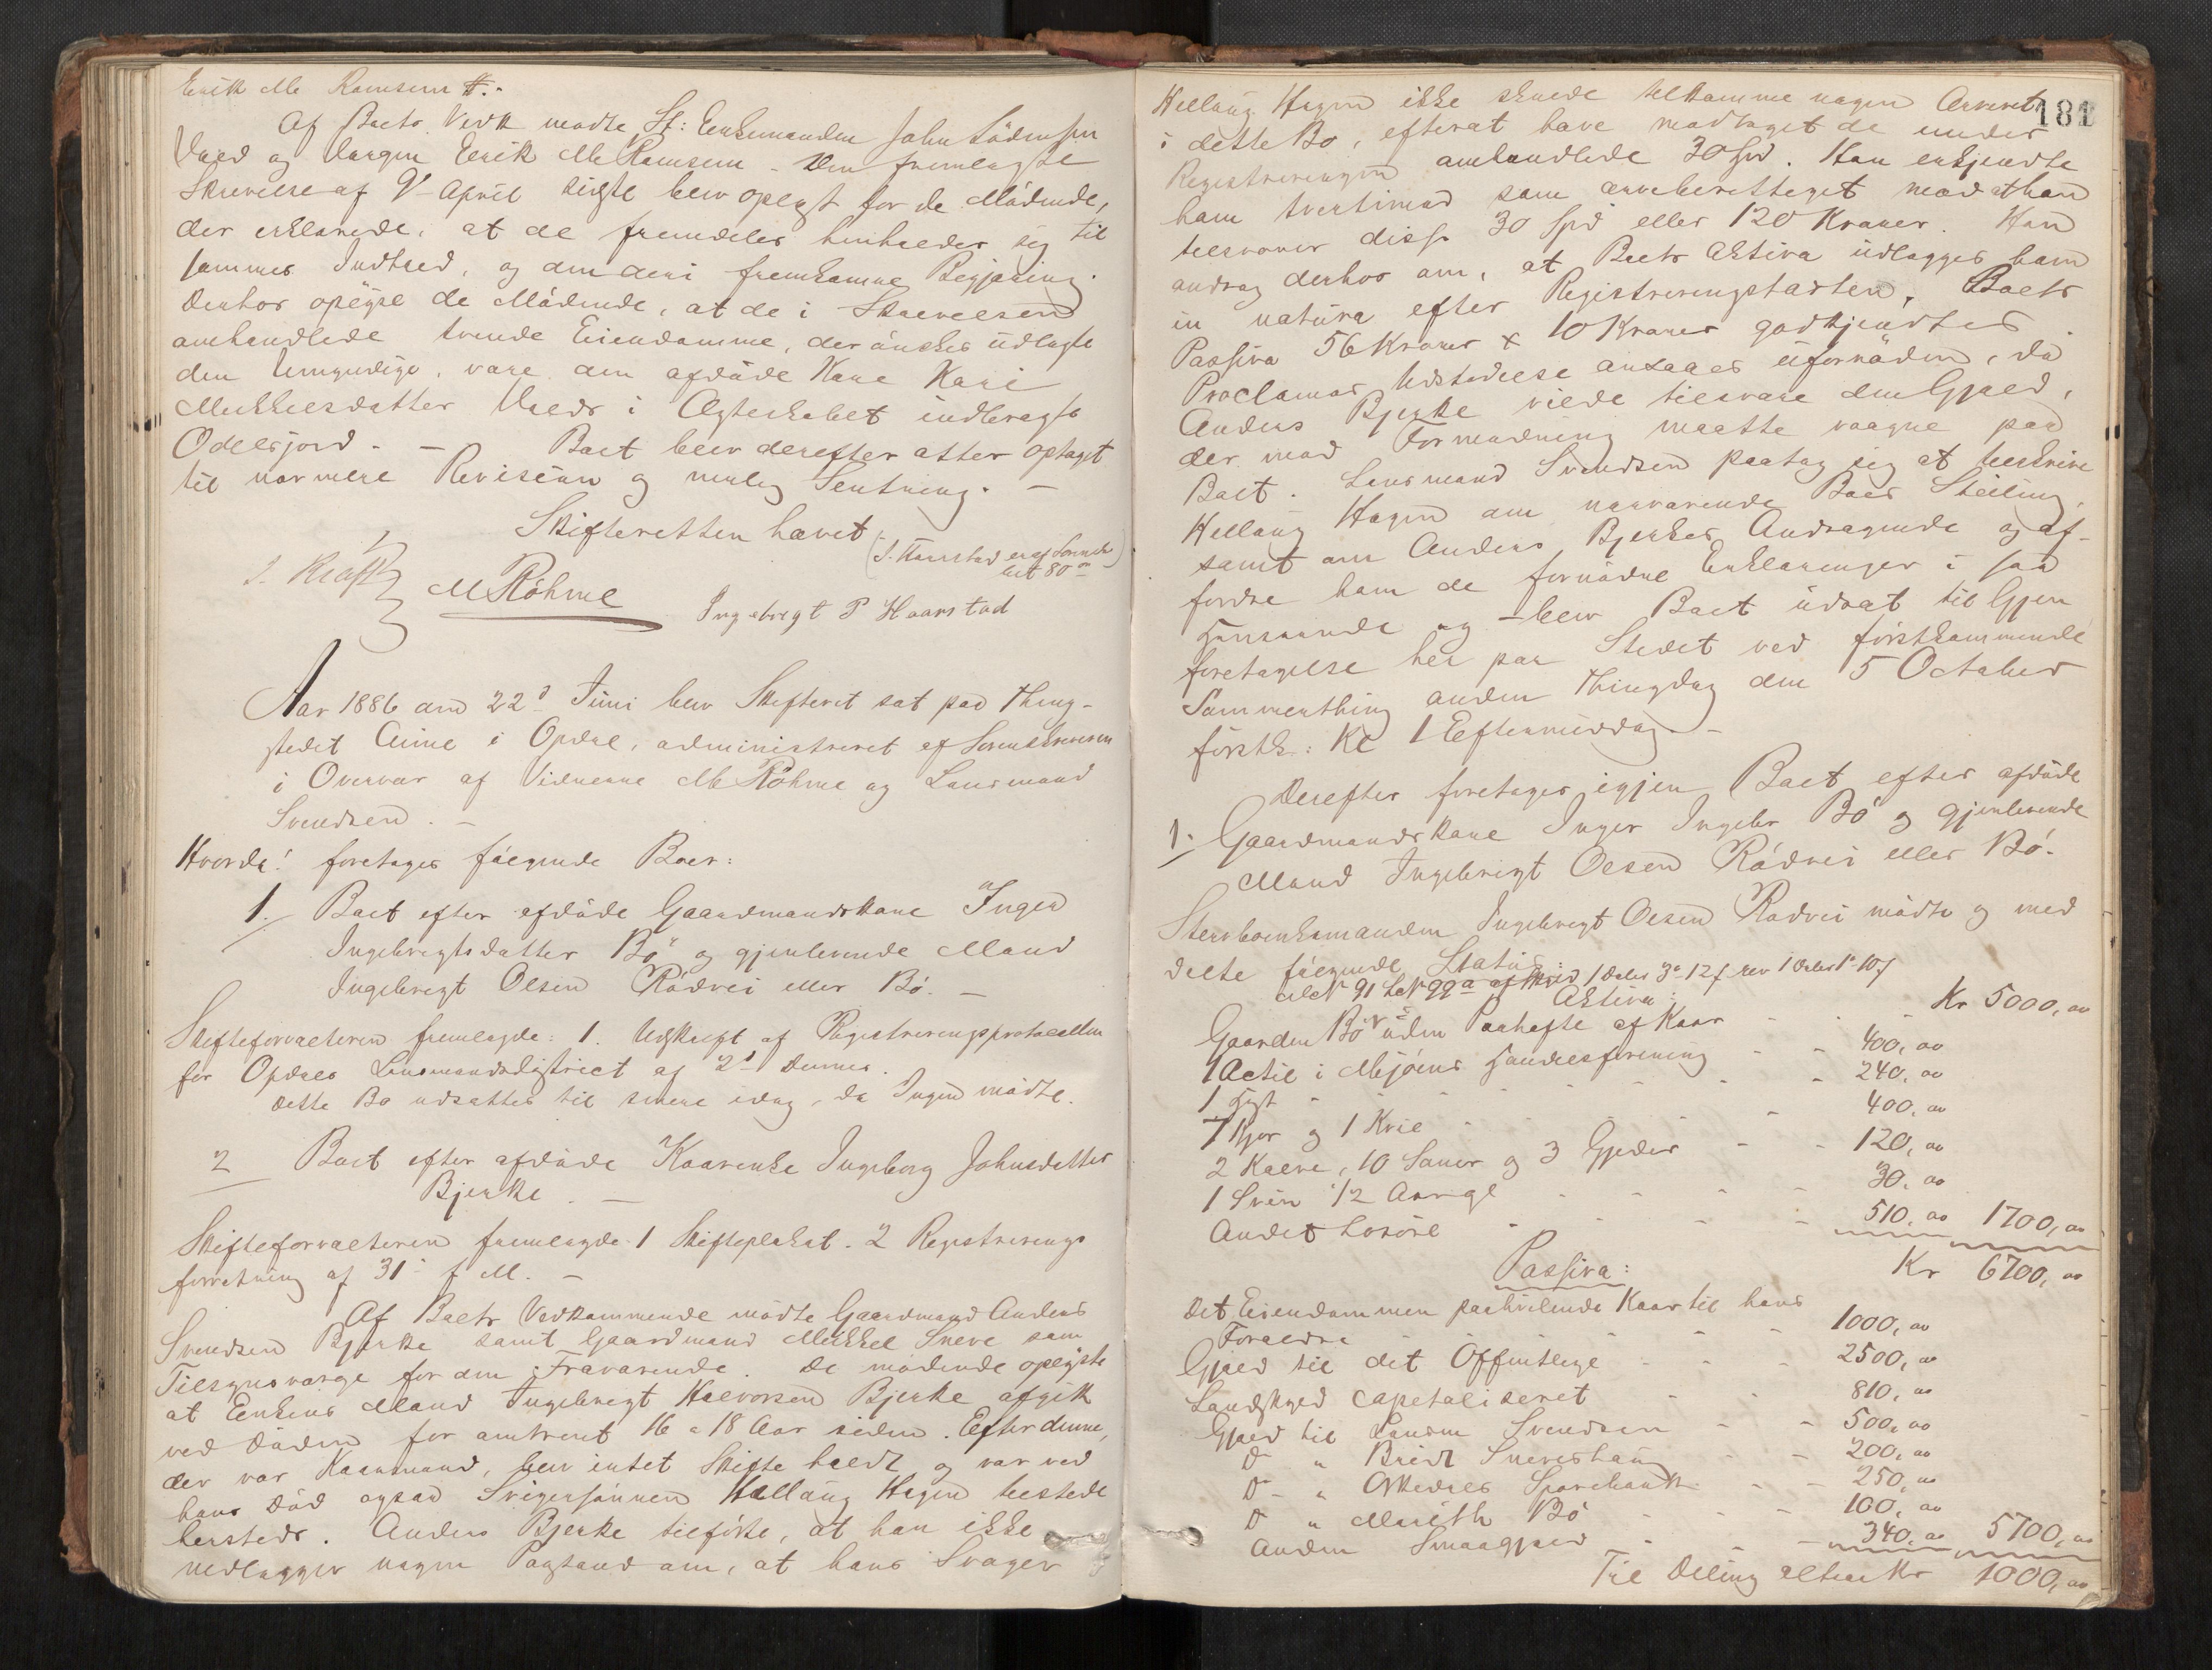 Erik M Ramsem #.-
Af Boets Vedk mødte St: Enkemanden John
Vard og Vergen Erik M Ramsem - Den fremlagte
Skrivelse af 9 April sidste blev oplæst for de Mødende,
der erklærede, at de fremdeles henholder sig til
sammes Indhold, og den deri fremkomne Begjæring.
Derhos oplyse de Mødende, at de i Skrivelsen
omhandlede tvende Eiendomme, der ønskes udlagt
den Umyndige, vare den afdøde Kone Kari
Mikkelsdatter Vards i Ægteskabet indbragte
Odelsjord. - Boet blev derefter atter optaget
til nærmere Revision og mulig Slutning. -
Skifteretten hævet
J. Kraft M Röhme Ingebrigt P Haarstad
Aar 1886 den 22d Juni blev Skifteret sat paa Thing-
stedet Aune i Opdal, administreret af Sorenskriveren
i Overvær af Vidnerne M Röhme og Lensmand
Svendsen. -
Hvorda! foretages følgende Boer:
1. Boet efter afdøde Gaardmandskone Inger
Ingebrigtsdatter Bö og gjenlevende Mand
Ingebrigt Olsen Rødvei eller Bö. -
Skifteforvalteren fremlagde: 1. Udskrift af Registreringsprotocollen
for Opdals Lensmandsdistrict af 2d Dennes.
Dette Bo udsattes til senere idag, da Ingen mødte.
2 Boet efter afdøde Kaarenke Ingeborg Johnsdatter
Bjerke. -
Skifteforvalteren fremlagde 1 Skifteplakat. 2 Registrerings
forretning af 31 f M. -
Af Boets Vedkommende mødte Gaardmand Anders
Svendsen Bjerke samt Gaardmand Mikkel Sneve som
Tilsynsværge for den Fraværende. De mødende oplyste
at Enkens Mand Ingebrigt Halvorsen Bjerke afgik
ved Døden for omtrent 16 a 18 Aar siden. Efter denne,
der var Kaarmand, blev intet Skifte holdt og var ved
hans Død ogsaa Svigersønnen Hellaug Hagen
hersteds. Anders Bjerke tilførte, at han ikke
nedlægger nogen Paastand om, at hans Svoger
181
Hellaug Hagen ikke skulde tilkomme nogen Arveret
i dette Bo, efterat have modtaget de under
Registreringen omhandlede 30 Spd. Han erkjendte
ham tvertimod som arveberettiget mod at han
tilsvarer disse 30 Spd eller 120 Kroner. Han
androg derhos om, at Boets Aktiva udlægges ham
in natura efter Registreringstaxten. Boets
Passiva 56 Kroner + 10 Kroner godkjendtes.
Proclamas Udstedelse ansaaes ufornøden, da
Anders Bjerke vilde tilsvare den Gjæld,
der mod Formodning maatte vaagne paa
Boet. Lensmand Svendsen paatog sig at tilskrive
Hellaug Hagen om nærværende Boes Stilling,
samt om Anders Bjerkes Andragende og af-
fordre ham de fornødne Erklæringer i saa
Henseende og - blev Boet udsat til Gjen
foretagelse her paa Stedet ved førstkommende
Sommerthing anden Thingdag den 5 October
førstk: Kl 1 Eftermiddag. -
Derefter foretages igjen Boet efter afdøde
1. Gaardmandskone Inger Ingebr Bö og gjenlevende
Mand Ingebrigt Olsen Rødvei eller Bö.
Stervboenkemanden Ingebrigt Olsen Rødvei mødte og med
delte følgende Status:
Aktiva:
Gaarden Bö uden Paahefte af Kaar - - Kr 5000,00
1 Actie i Mjøens Handelsforening - - 400,00
1 Hest - - - 240,00
7 Kjør og 1 Kvie - - 400,00
2 Kalve, 10 Sauer og 3 Gjeder - - 120,00
1 Svin 1/2 Aargl - - - 30,00
Andet Løsøre - - - 510,00 1700,00
Kr 6700,00
Passiva:
Det Eiendommen paahvilende Kaar til hans
Forældre - - - 1000,00
Gjæld til det Offentlige - - 2500,00
Landskyld capitaliseret - - 810,00
Gjæld til Lensm Svendsen - - 500,00
Do " Snevershaug - - 200,00
Do " Opdals Sparebank - - 250,00
Do " Marith Bö - - 100,00
Anden Smaagjæld - - - 340,00 5700,00
Til Deling altsaa Kr 1000,00